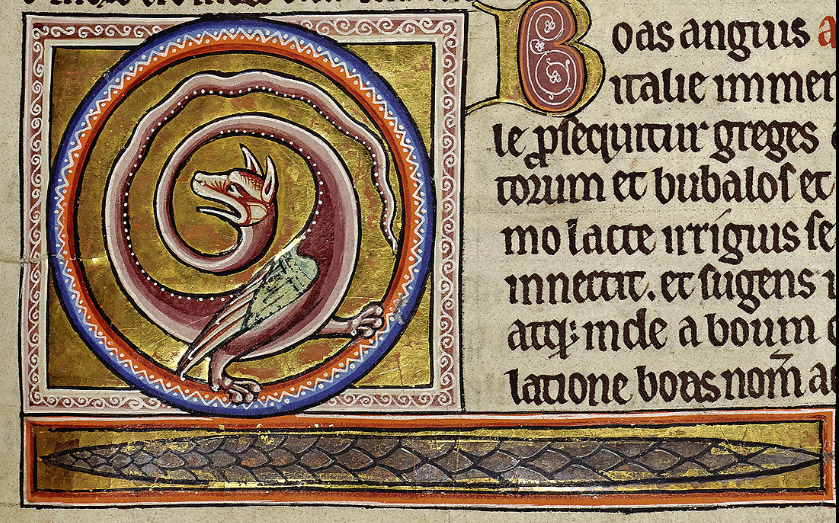 Boas anguis a
italie immen
se psequitur greges
torum et bubalos et
mo lacte irriguis se
innectit. et sugens i
atq; inde a boum
latione boas nom̄ a